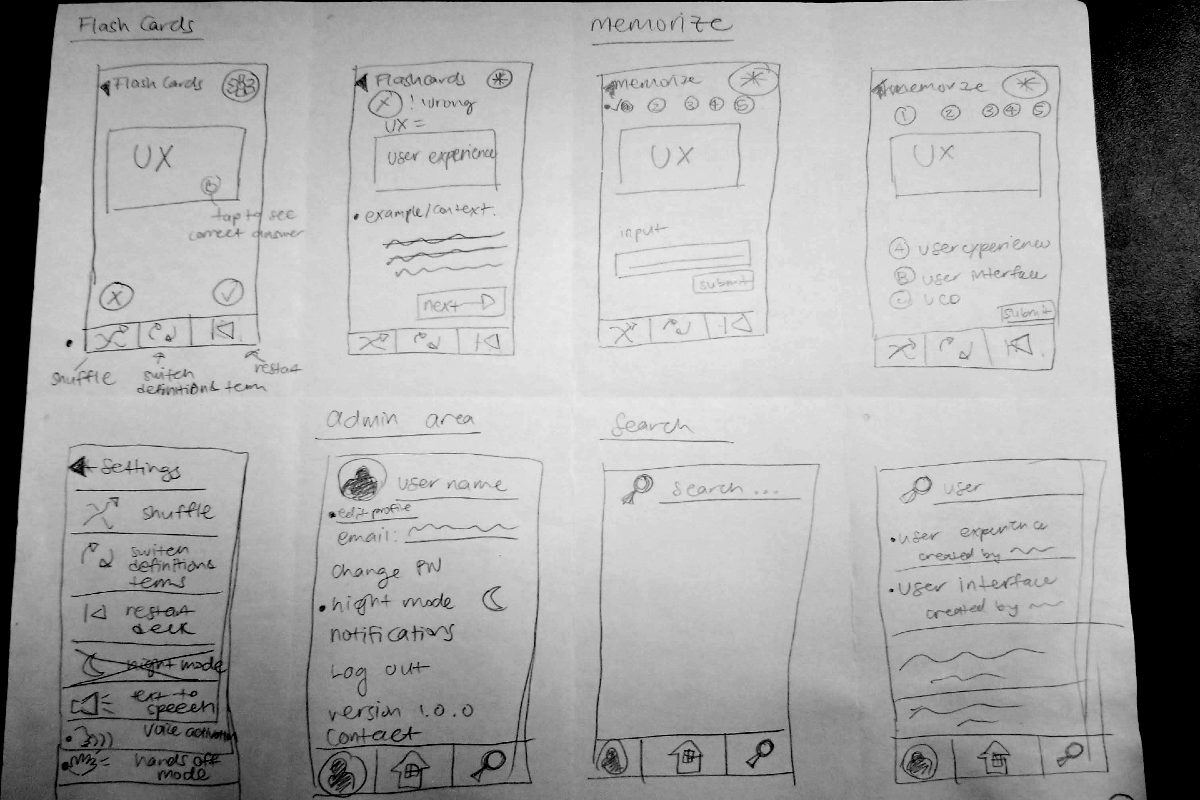 Flash Cards
memorize
Flash Cards
UX
tap to see
correct answer
X
shuffle
switch
definitions term
restart
Flashcards
X ! wrong
UX =
user experience
• example/context.
next
memorize
② ③ ④ ⑤
UX
input
submit
memorize
① ② ③ ④ ⑤
UX
Ⓐ user experience
Ⓑ user interface
Ⓒ UCD
submit
Settings
shuffle
switch
definitions
terms
restart
deck
night mode
text to
speech
voice activation
hands off
mode
admin area
user name
• edit profile
email:
change PW
• night mode
notifications
Log out
version 1.0.0
Contact
Search
Search ...
user
• user experience
created by
• user interface
created by